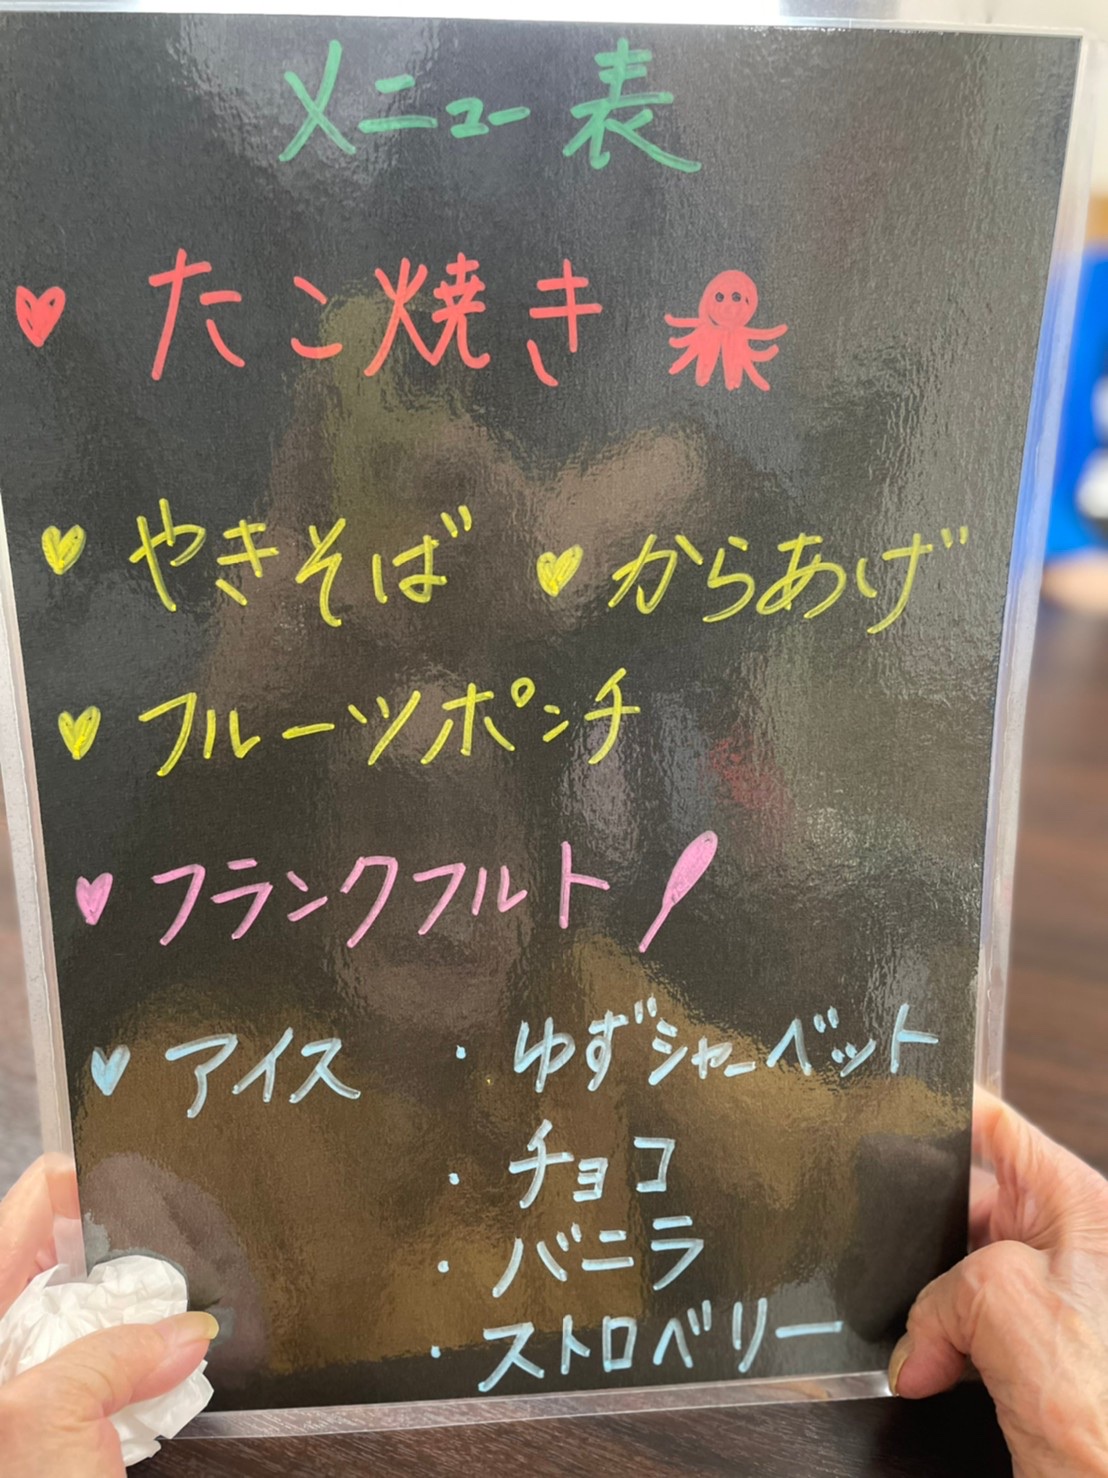 メニュー表
たこ焼き
やきそば からあげ
フルーツポンチ
フランクフルト
アイス ・ゆずシャーベット
・チョコ
・バニラ
・ストロベリー